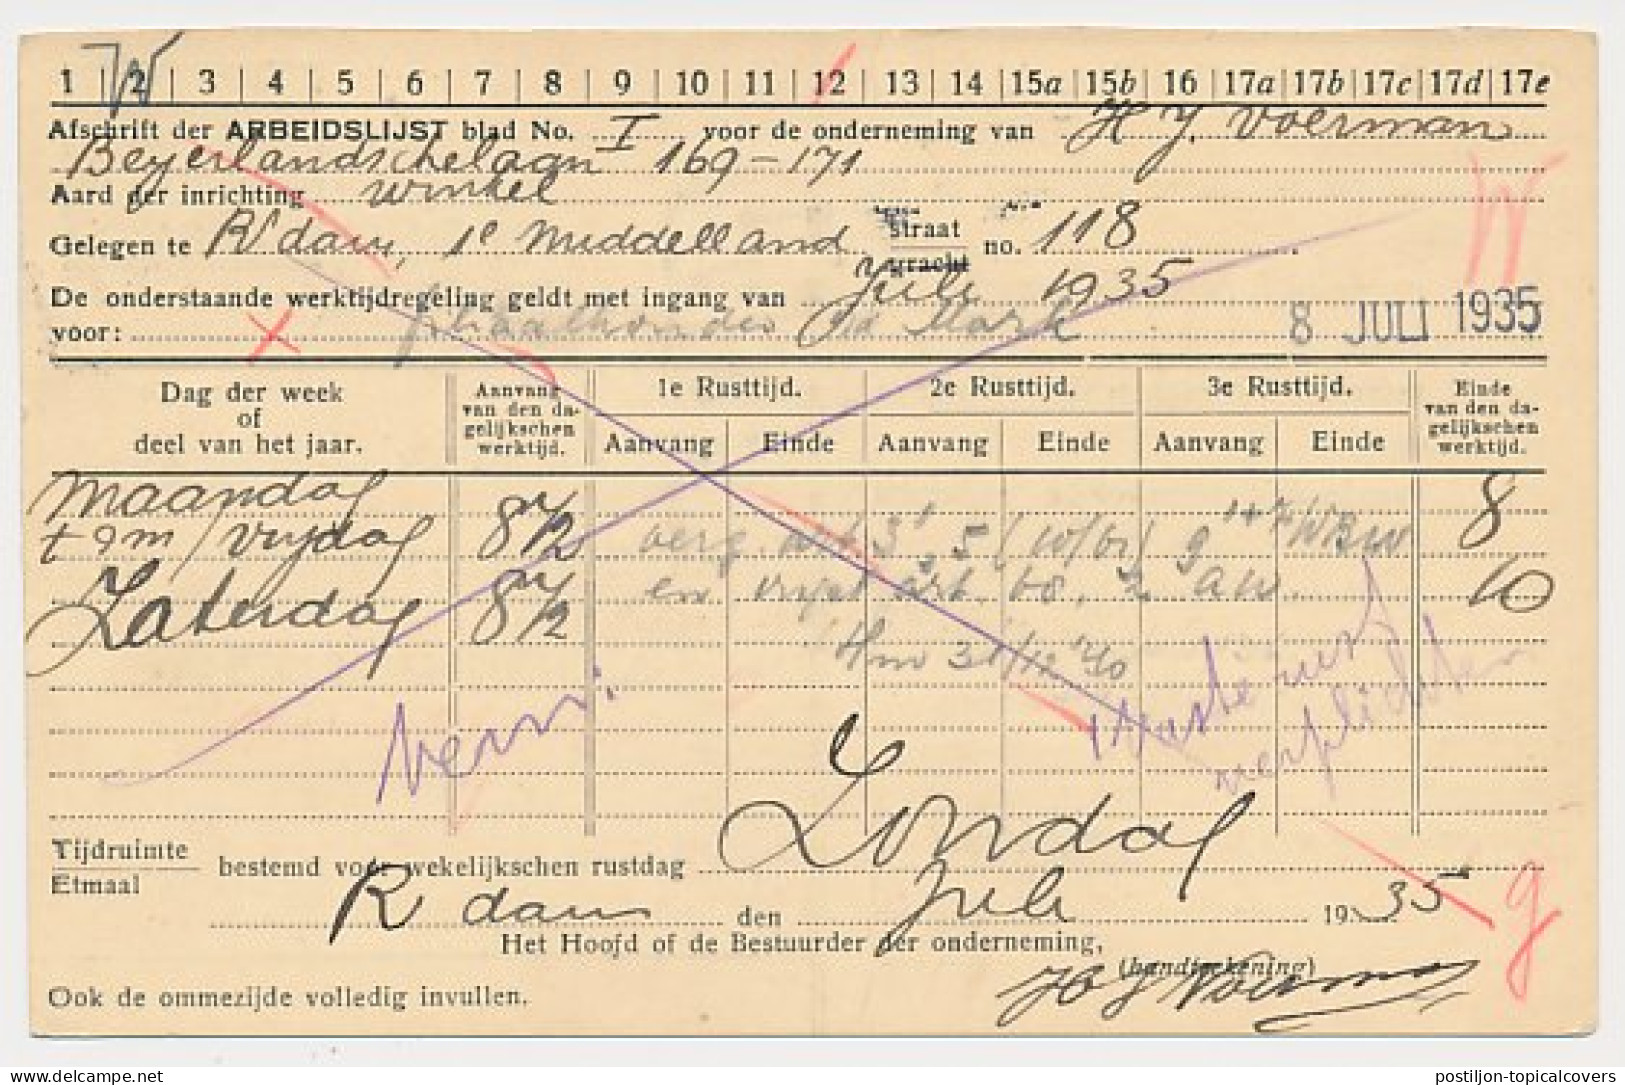 1 | 2 | 3 | 4 | 5 | 6 | 7 | 8 | 9 | 10 | 11 | 12 | 13 | 14 | 15a | 15b | 16 | 17a | 17b | 17c | 17d | 17e
W
Afschrift der ARBEIDSLIJST blad No. I voor de onderneming van H J. Voerman
Beyerlandschelaan 169-171
Aard der inrichting winkel
W
Gelegen te R'dam, 1e Middelland straat gracht no. 118
De onderstaande werktijdregeling geldt met ingang van Juli 1935
voor:
8 JULI 1935
Dag der week of deel van het jaar.
Aanvang van den dagelijkschen werktijd.
1e Rusttijd. 2e Rusttijd. 3e Rusttijd.
Aanvang Einde Aanvang Einde Aanvang Einde
Einde van den dagelijkschen werktijd.
Maandag
t/m vrijdag 8 1/2 8
Zaterdag 8 1/2 10
en art. 68, 2 AW.
31/12 '40
verplichten
Tijdruimte
Etmaal
bestemd voor wekelijkschen rustdag Zondag
R dam den Juli 1935
g
Het Hoofd of de Bestuurder der onderneming,
(handteekening)
H J Voerman
Ook de ommezijde volledig invullen.
www.delcampe.net
postiljon-topicalcovers